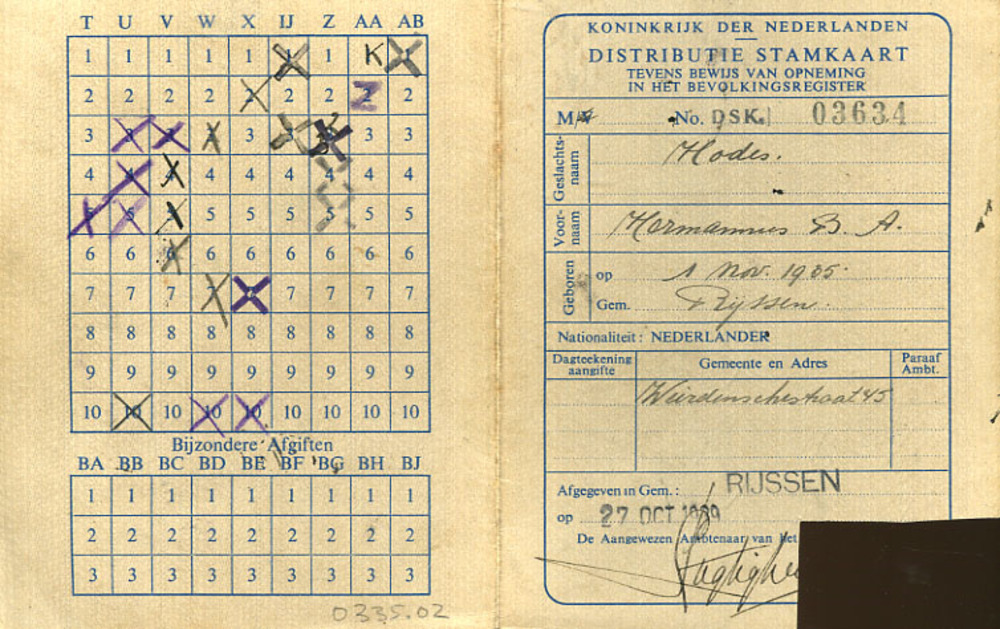 T U V W X IJ Z AA AB
1 1 1 1 1 1 1 K
2 2 2 2 2 2 2 2
3 3 3 3 3 3 3
4 4 4 4 4 4 4 4 4
5 5 5 5 5 5 5 5 5
6 6 6 6 6 6 6 6 6
7 7 7 7 7 7 7 7
8 8 8 8 8 8 8 8 8
9 9 9 9 9 9 9 9 9
10 10 10 10 10 10 10 10 10
Bijzondere Afgiften
BA BB BC BD BE BF BG BH BJ
1 1 1 1 1 1 1 1 1
2 2 2 2 2 2 2 2 2
3 3 3 3 3 3 3 3 3
0335.02
KONINKRIJK DER NEDERLANDEN
DISTRIBUTIE STAMKAART
TEVENS BEWIJS VAN OPNEMING
IN HET BEVOLKINGSREGISTER
M/V No. DSK. 03634
Geslachts-
naam
Hodes.
Voor-
naam
Hermannus B. A.
Geboren
op 1 Nov. 1905.
Gem. Rijssen.
Nationaliteit: NEDERLANDER
Dagteekening
aangifte
Gemeente en Adres
Paraaf
Ambt.
Wierdenschestraat 45
Afgegeven in Gem.: RIJSSEN
op 27 OCT 1939
De Aangewezen Ambtenaar van het